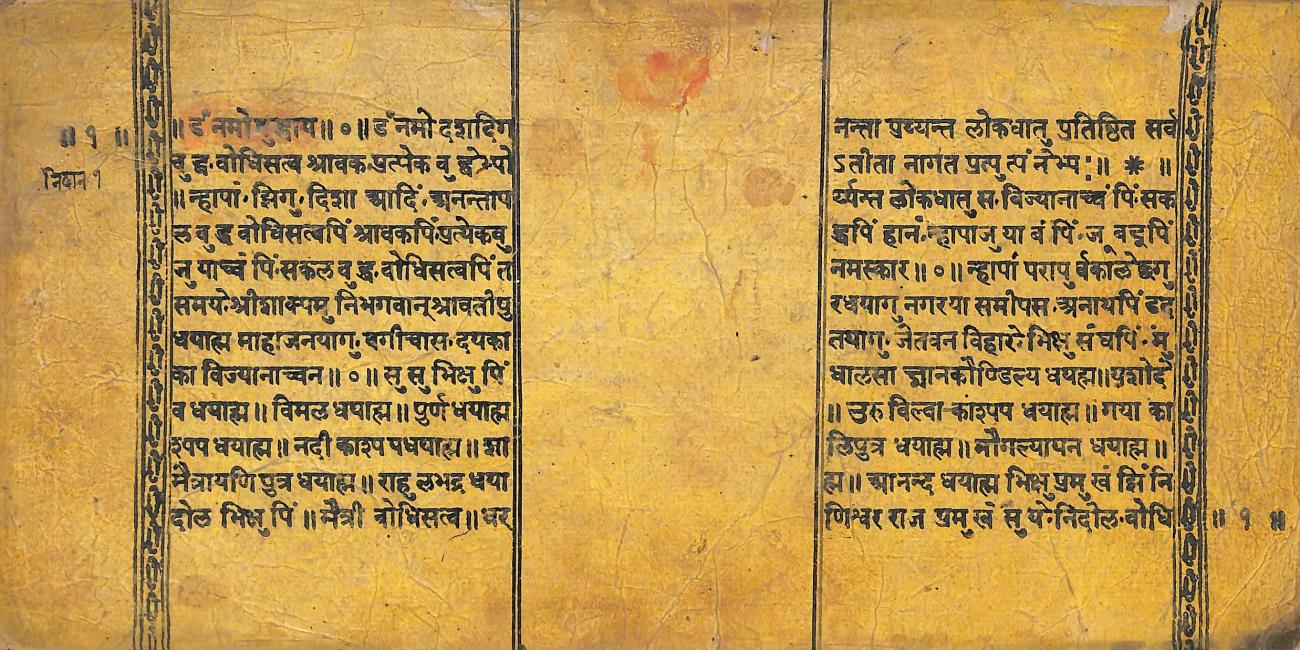 ॥ १ ॥ ॥ ॐ नमो बुद्धाय॥ ०॥ ॐ नमो दशदिग नन्ता प्रय्यन्त लोकधातु प्रतिष्ठित सर्व
वुद्ध.वोधिसत्व श्रावक.प्रत्येक वुद्धेभ्यो ऽतीता नागत प्रत्युत्पंनेभ्यः॥ * ॥
निदान १
॥न्हापां.झिगु.दिशा आदिं.अनन्ताप र्य्यन्त लोकधातुस.विज्यानाच्वं पिं.सक
ल वुद्ध वोधिसत्वपिं श्रावकपिं.प्रत्येकवु द्धपिं हानं.न्हापाजुया वं पिं.ज वदूपिं
नुयाच्वं पिं.सकल वुद्ध.वोधिसत्वपिं त नमस्कार॥०॥न्हापां परापुर्वकाले छगु
समये.श्रीशाक्यमुनिभगवान्श्रावतीपु रधयागु नगरया समीपस.अनाथपिं डद
धयाह्म माहाजनयागु.वगीचास.दयका तयागु.जेतवन विहारे.भिक्षु संघपिं.मुं
का विज्यानाच्वन॥०॥सु सु भिक्षुपिं धालसा ज्ञानकौण्डिल्य धयह्म॥यशोदे
व धयाह्म॥विमल धयाह्म॥पुर्ण धयाह्म ॥उरु विल्वा काश्यप धयाह्म॥गया का
श्यप धयाह्म॥नदी काश्यप धयाह्म॥शा लिपुत्र धयाह्म॥मौगल्यायन धयाह्म॥
मैत्रायणि पुत्र धयाह्म॥राहुलभद्र धया ह्म॥आनन्द धयाह्म भिक्षु प्रमुखं झिं नि
दोल भिक्षुपिं॥मैत्री वोधिसत्व॥धर णिश्वर राज प्रमुखं सुये.निदोल.वोधि ॥ १ ॥